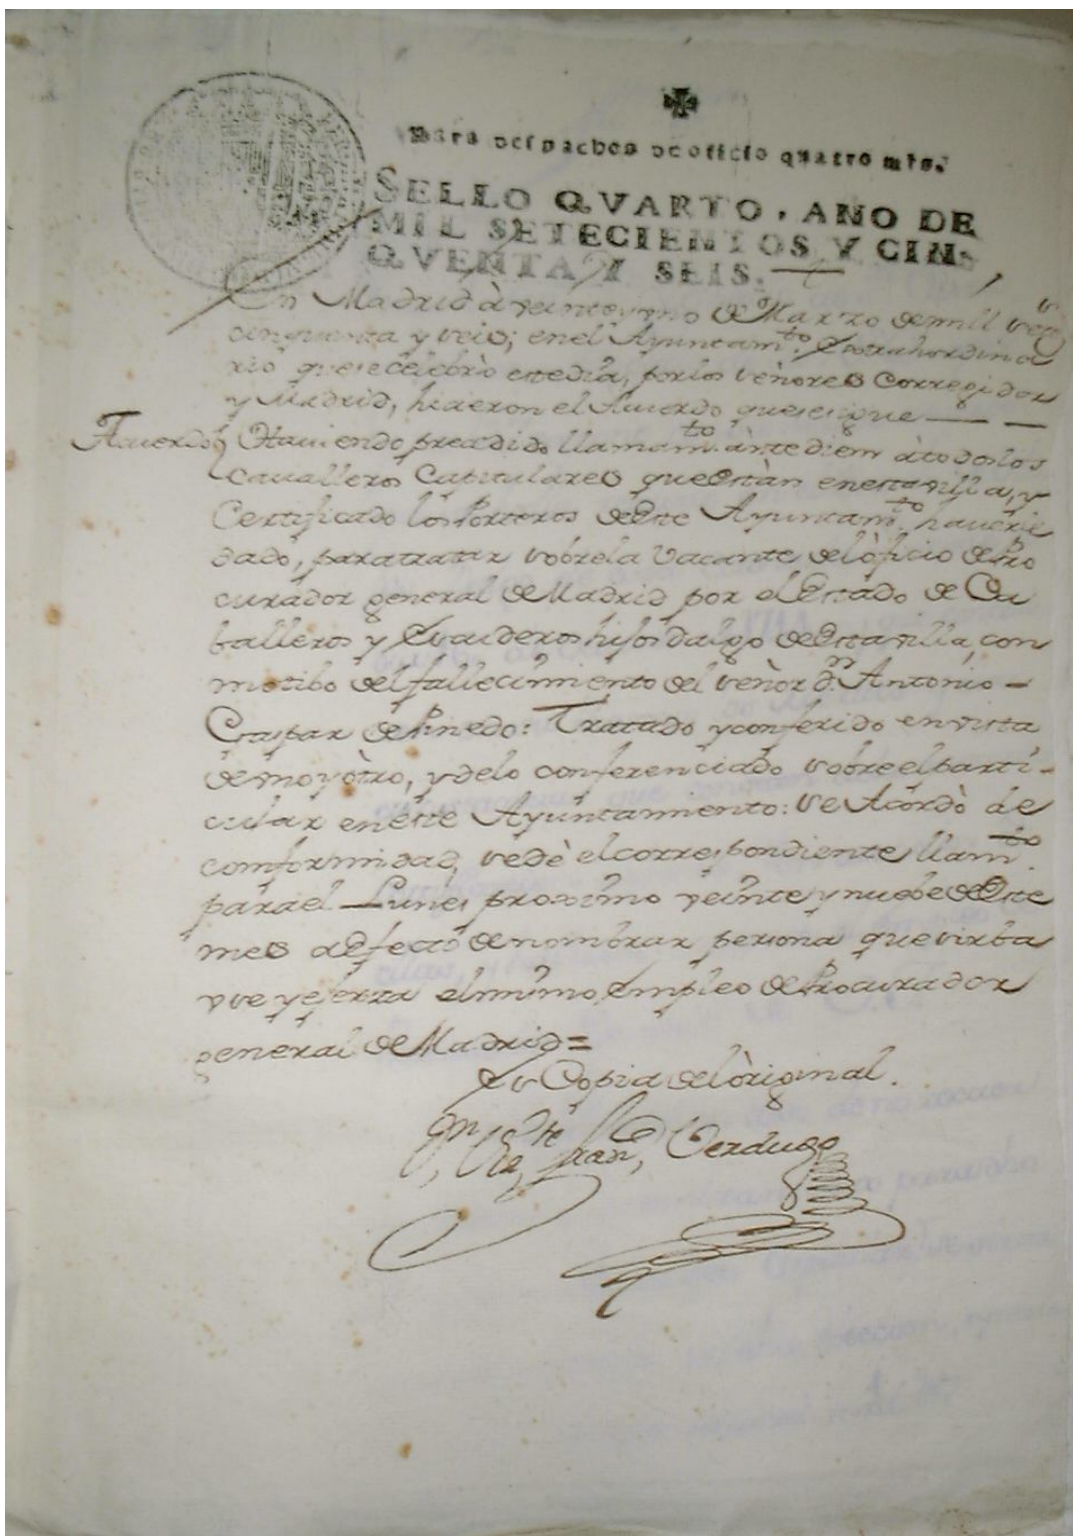 Para despachos de oficio quatro mrs.
SELLO QVARTO, AÑO DE
MIL SETECIENTOS Y CIN-
QVENTA Y SEIS.
En Madrid à veinte y uno de Marzo de mill setz.
cinquenta y seis; en el Ayuntam.to Extrahordina
rio que se celebrò este dia, por los señores Corregidor
y Madrid, hicieron el Acuerdo que se sigue
Acuerdo Haviendo precedido llamam.to ànte diem à todos los
Cavalleros Capitulares que estàn en esta villa, y
Certificado los Porteros de este Ayuntam.to haverse
dado, para tratar sobre la Vacante del òficio de Pro
curador general de Madrid por el Estado de Ca
balleros y Escuderos hijos dalgo de esta villa, con
motibo del fallecimiento del señor d.n Antonio
Gaspar de Pinedo: Tratado y conferido en vista
de uno y òtro, y de lo conferenciado sobre el parti-
cular en este Ayuntamiento: Se Acordò de
conformidad, se dè el correspondiente llam.to
para el Lunes proximo veinte y nuebe de este
mes a efecto de nombrar persona que sirba
use y ejerza el mismo Empleo de Procurador
general de Madrid =
Es Copia del òriginal.
Verdugo